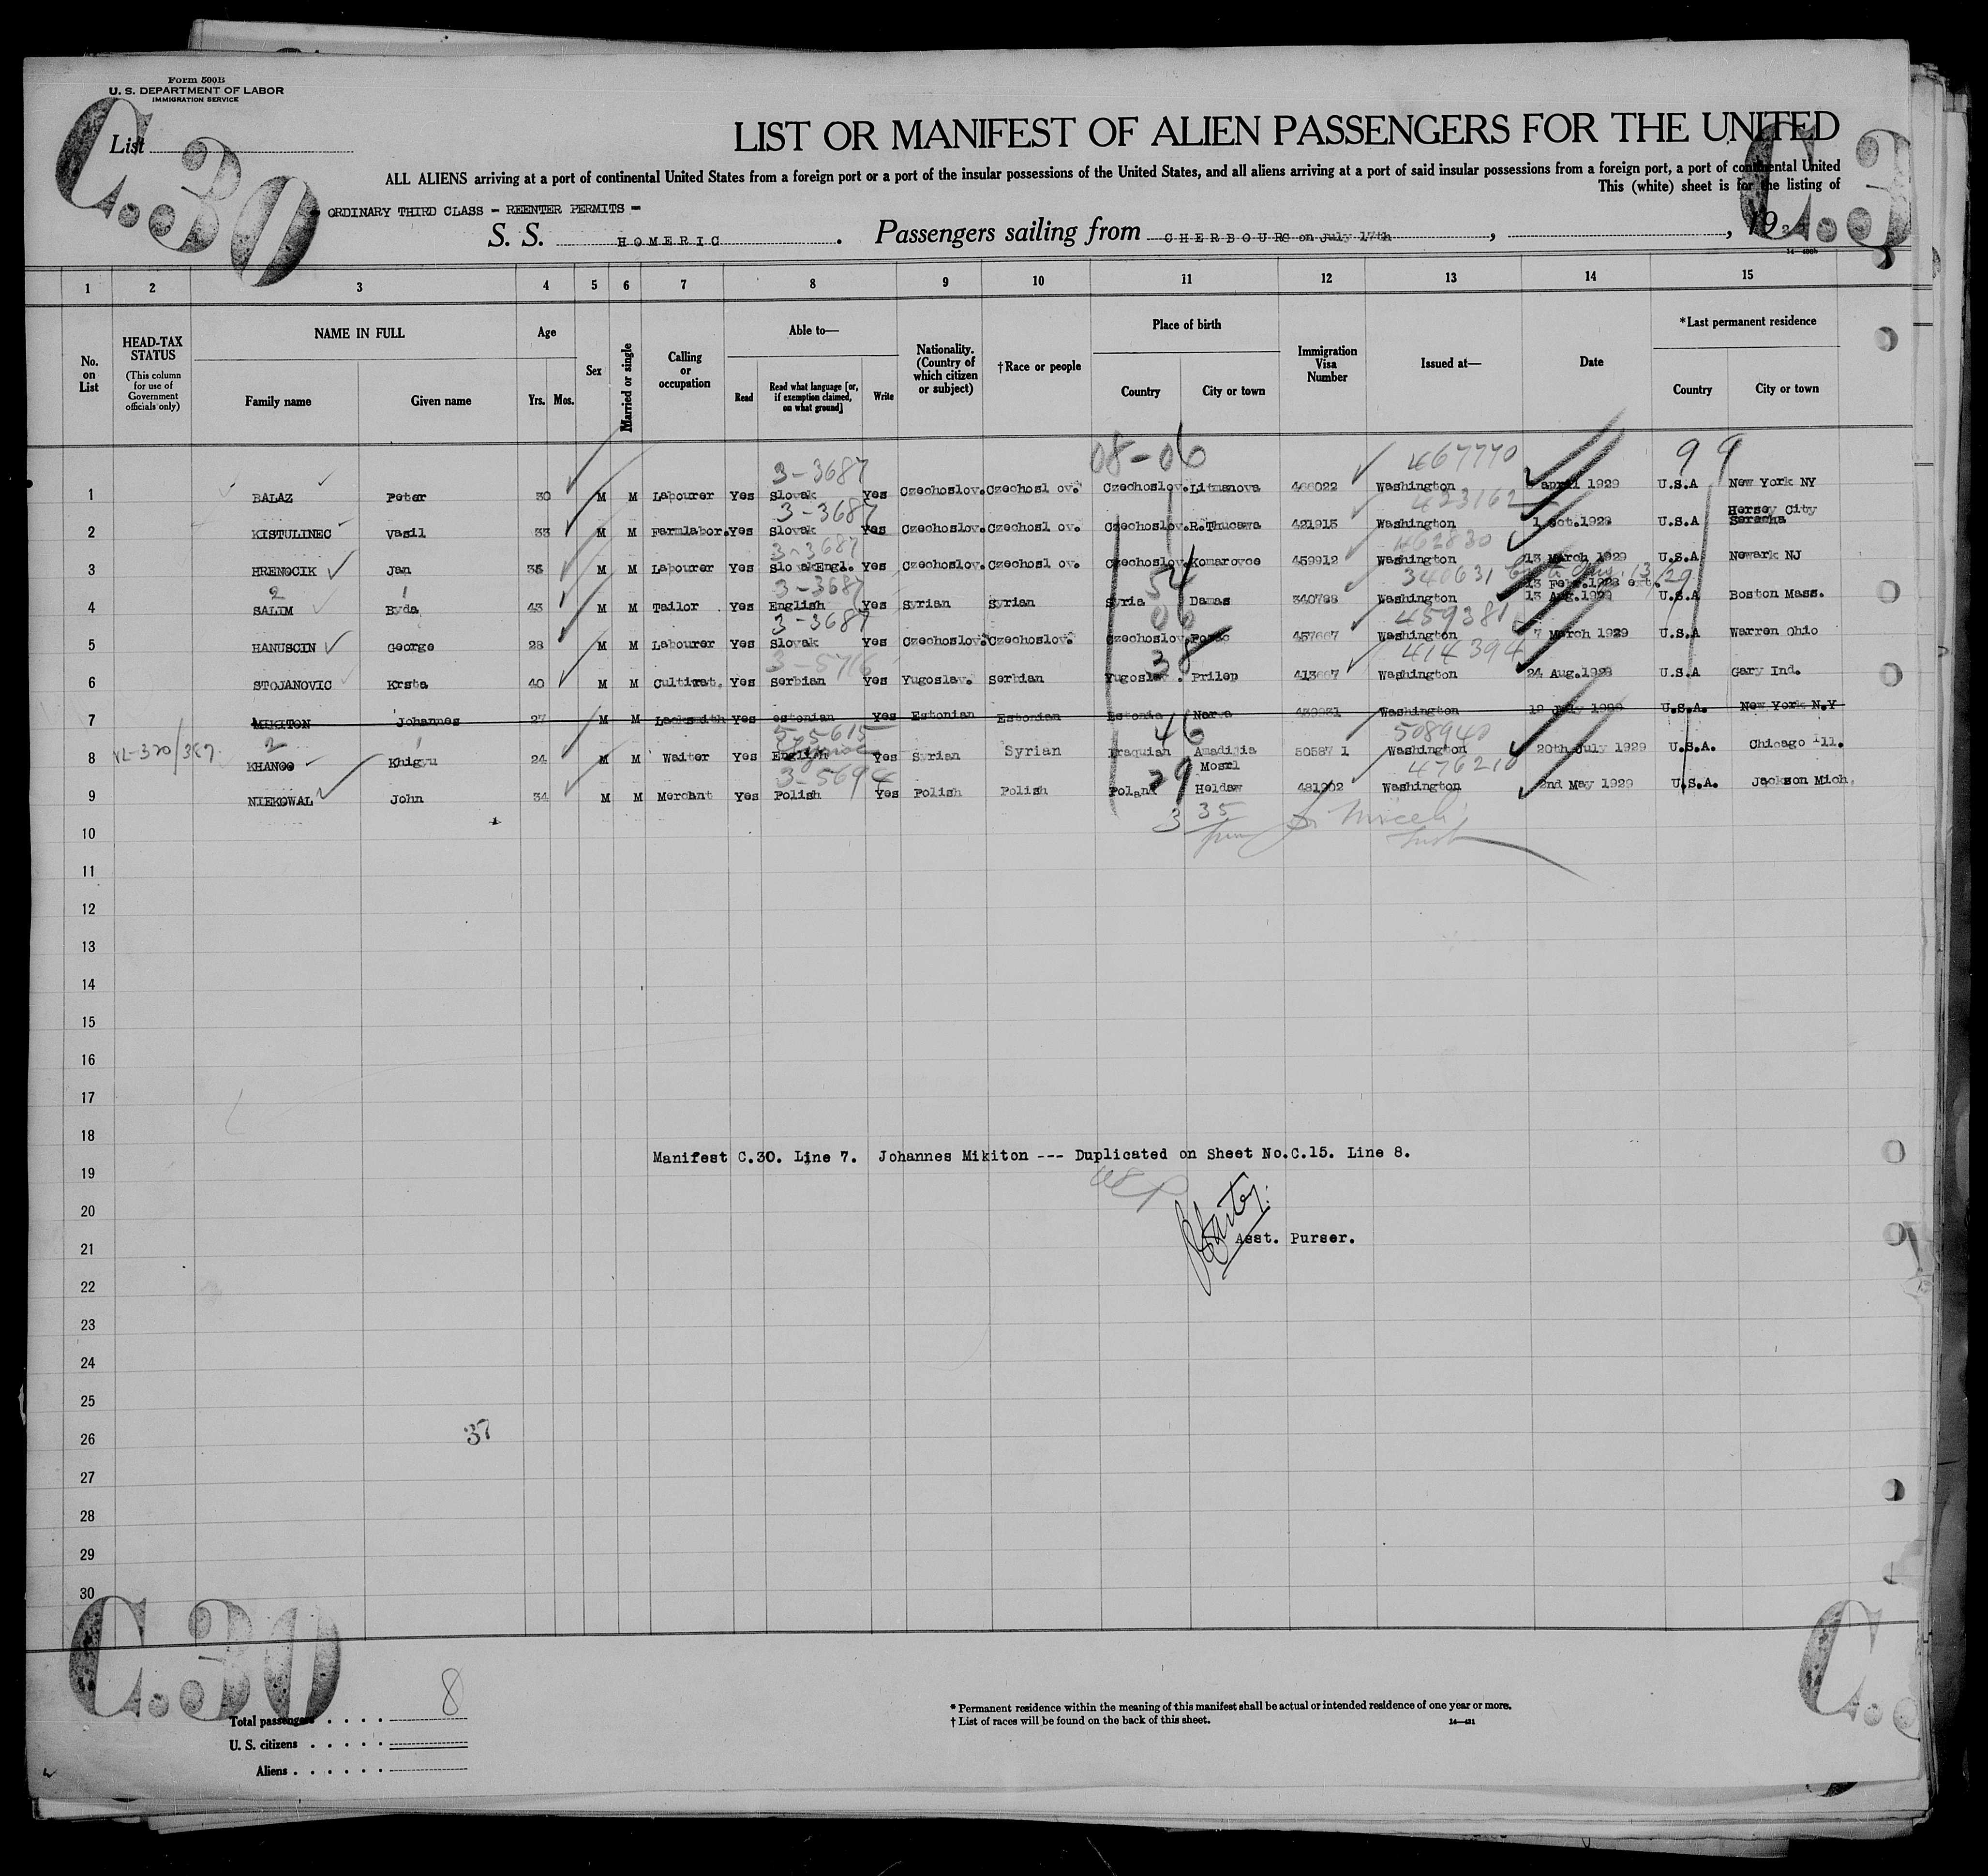 Form 500B
U. S. DEPARTMENT OF LABOR
IMMIGRATION SERVICE
C.30
C.3
List
LIST OR MANIFEST OF ALIEN PASSENGERS FOR THE UNITED
ALL ALIENS arriving at a port of continental United States from a foreign port or a part of the insular possessions of the United States, and all aliens arriving at a port of said insular possessions from a foreign port, a port of continental United
This (white) sheet is for the listing of
ORDINARY THIRD CLASS - REENTER PERMITS -
S. S. HOMERIC. Passengers sailing from CHERBOURG on July 17th, , 19
1 2 3 4 5 6 7 8 9 10 11 12 13 14 15
No. on List
HEAD-TAX STATUS
(This column for use of Government officials only)
NAME IN FULL
Family name Given name
Age
Yrs. Mos.
Sex
Married or single
Calling or occupation
Able to—
Read
Read what language [or, if exemption claimed, on what ground]
Write
Nationality. (Country of which citizen or subject)
†Race or people
Place of birth
Country City or town
Immigration Visa Number
Issued at—
Date
*Last permanent residence
Country City or town
3-3687 08-06 467770 99
1 BALAZ Peter 30 M M Labourer Yes Slovak Yes Czechoslov. Czechoslov. Czechoslov. Litmanova 466022 Washington april 1929 U.S.A New York NY
3-3687 423162 Hersey City
2 KISTULINEC Vasil 33 M M Farmlabor. Yes Slovak Yes Czechoslov. Czechoslov. Czechoslov. R.Thucawa 421915 Washington 1 Oct.1928 U.S.A
3-3687 462830
3 HRENOCIK Jan 35 M M Labourer Yes SlovakEngl. Yes Czechoslov. Czechoslov. Czechoslov. Komarovce 459912 Washington 13 March 1929 U.S.A Newark NJ
2 1 3-3687 54 340631 13/29
13 Febr.1928 ext.
4 SALIM Byda 43 M M Tailor Yes English Yes Syrian Syrian Syria Damas 340798 Washington 13 Aug.1929 U.S.A Boston Mass.
3-3687 06 459381
5 HANUSCIN George 28 M M Labourer Yes Slovak Yes Czechoslov. Czechoslov. Czechoslov. 457667 Washington 7 March 1929 U.S.A Warren Ohio
3-5716 38 414394
6 STOJANOVIC Krsta 40 M M Cultivat. Yes Serbian Yes Yugoslav. Serbian Yugoslav. Prilep Washington 24 Aug.1928 U.S.A Gary Ind.
7 MIKITON Johannes 27 M M Locksmith Yes estonian Yes Estonian Estonian Estonia Narva Washington U.S.A. New York N.Y
2 1 5-5615 46 508940
8 KHANOO Khigyu 24 M M Waiter Yes English Yes Syrian Syrian Iraquian Amadijia 50587 1 Washington 20th July 1929 U.S.A. Chicago Ill.
3-5694 29 Mosrl 476210
9 NIEKOWAL John 34 M M Merchant Yes Polish Yes Polish Polish Poland Heldaw 481902 Washington 2nd May 1929 U.S.A. Jackson Mich.
10
11
12
13
14
15
16
17
18
Manifest C.30. Line 7. Johannes Mikiton --- Duplicated on Sheet No.C.15. Line 8.
19
20
21 Asst. Purser.
22
23
24
25
26 37
27
28
29
30
C.30
C.
Total passengers . . . . 8
U. S. citizens . . . . .
Aliens . . . . . .
* Permanent residence within the meaning of this manifest shall be actual or intended residence of one year or more.
† List of races will be found on the back of this sheet.
14—431